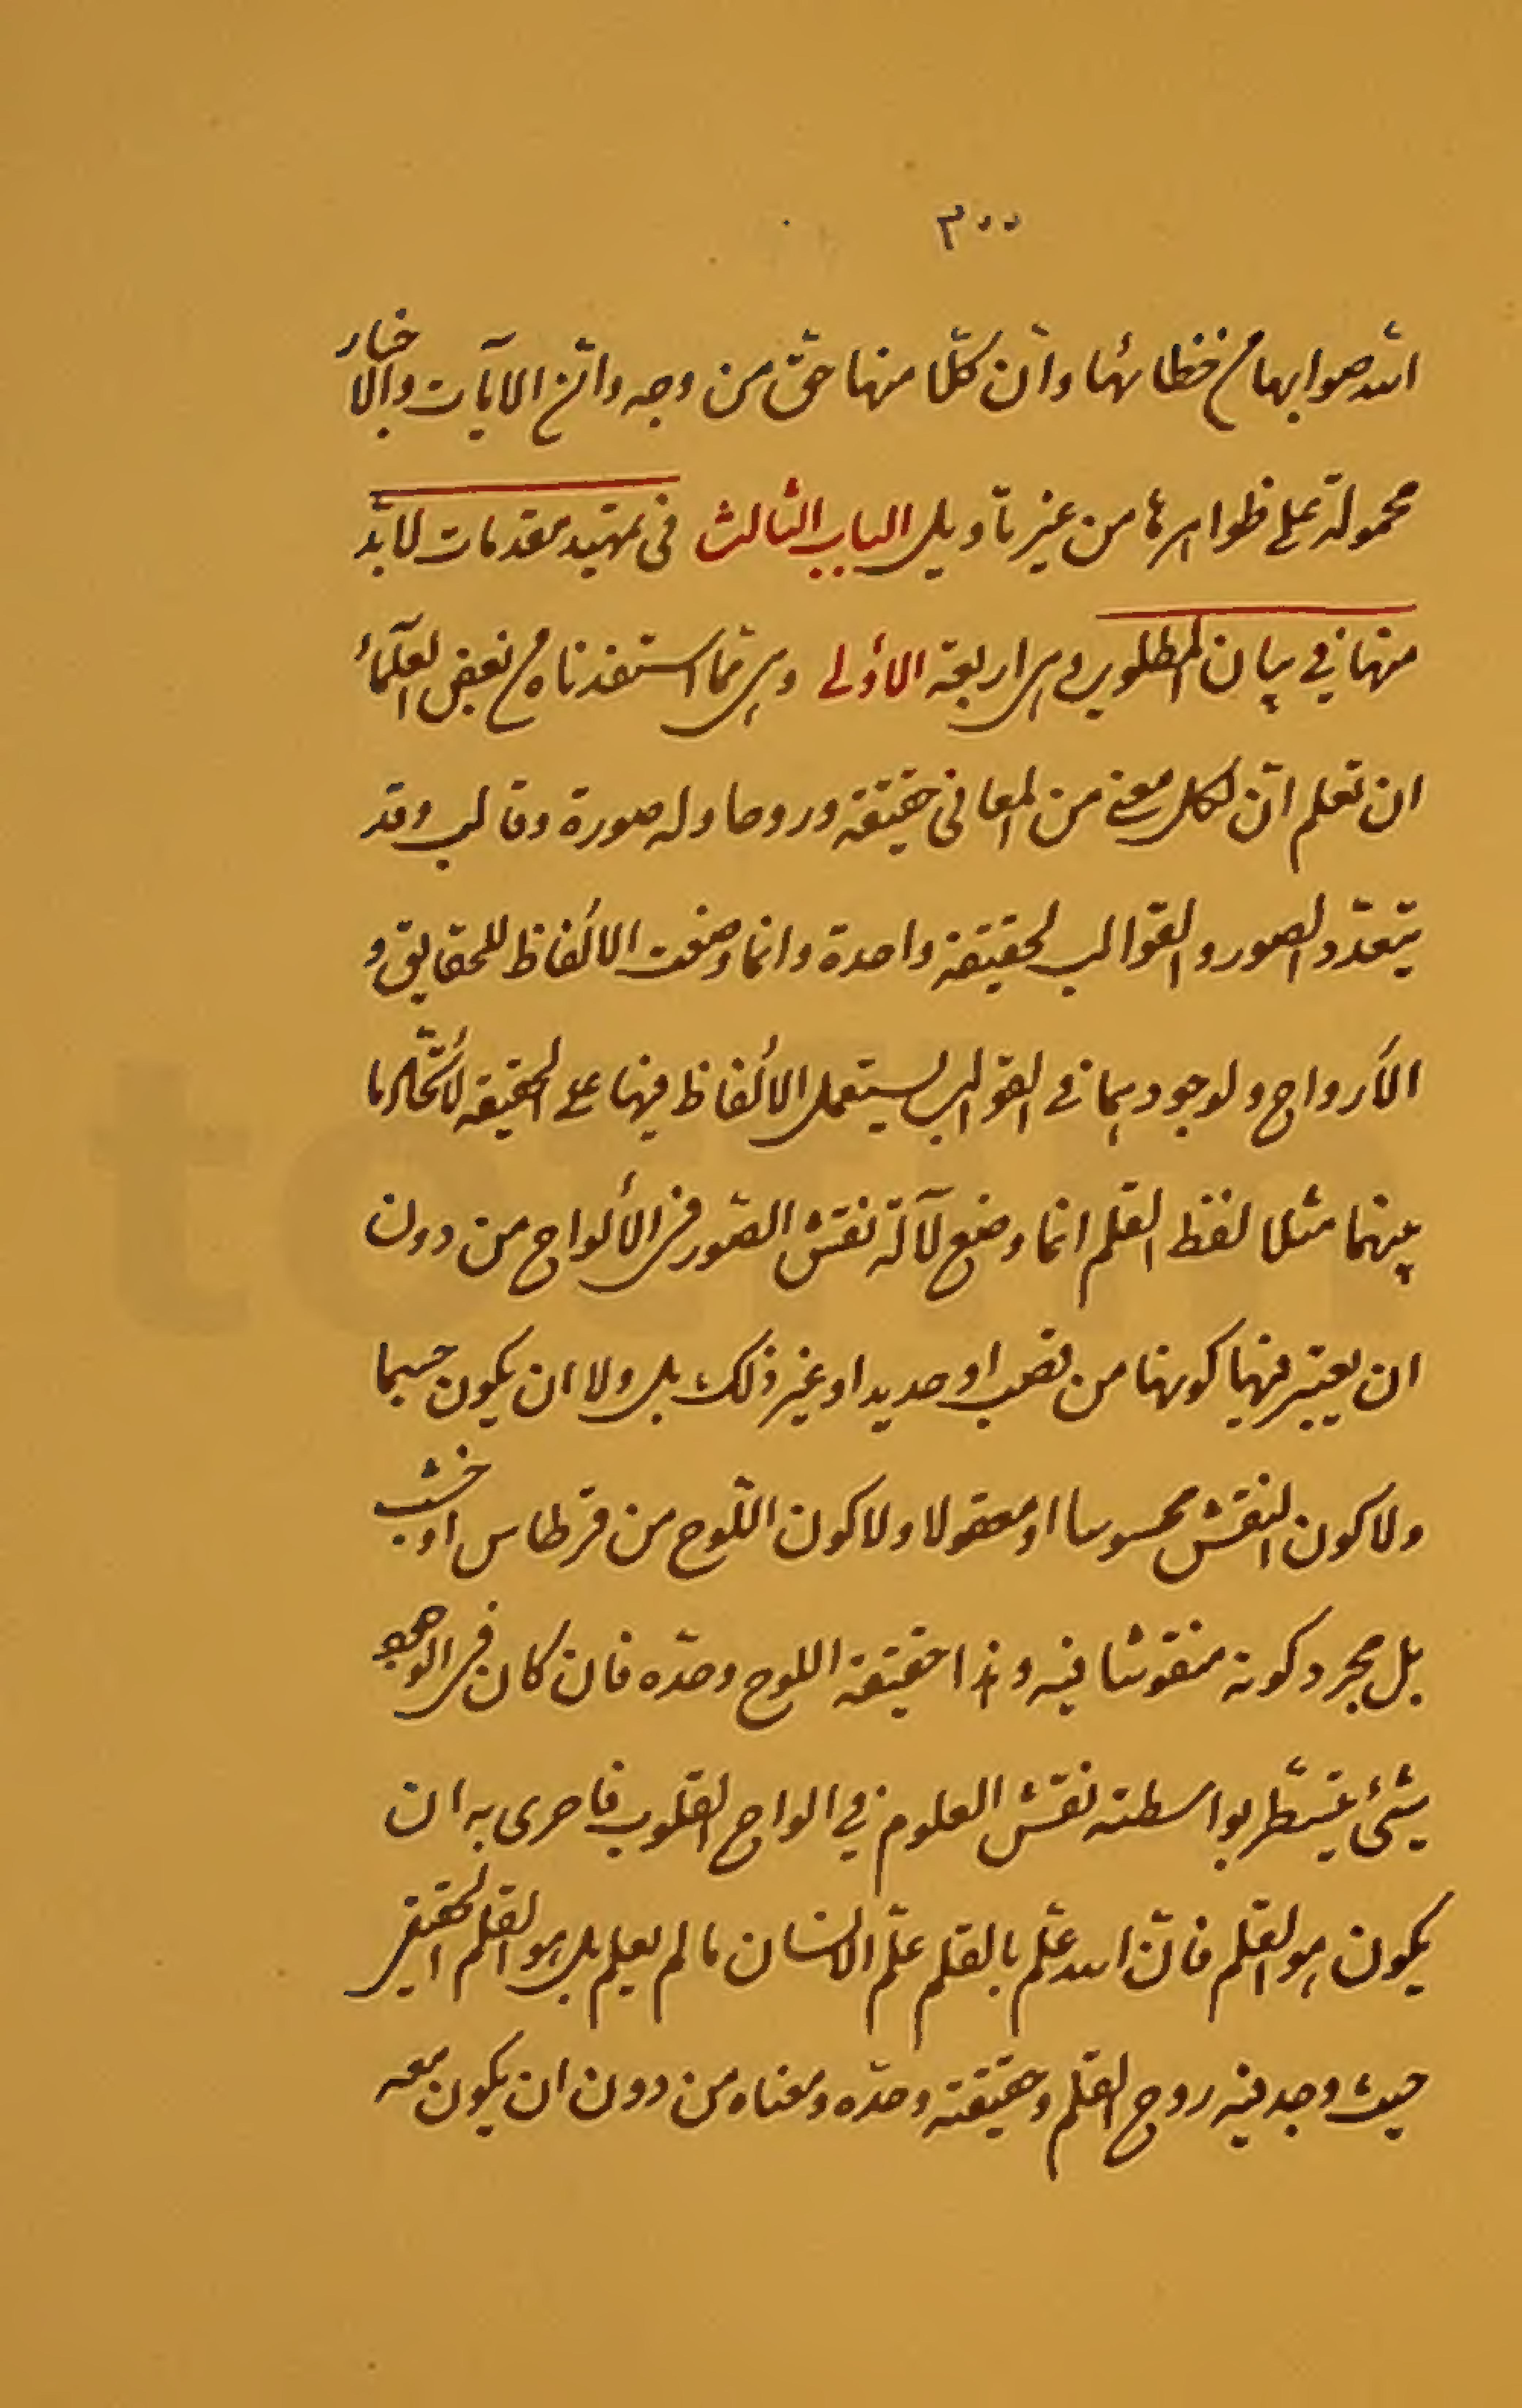 ٣٠٠
الله صوابها من خطائها وانّ كلّا منها حقّ من وجه وانّ الآيات والاخبار
محمولة على ظواهرها من غير تأويل الباب الثالث فى تمهيد مقدمات لابدّ
منها في بيان المطلوب وهى اربعة الاولى وهى ممّا استفدناه من بعض العلماء
ان تعلم انّ لكل معنى من المعانى حقيقة وروحا وله صورة وقالب وقد
يتعدّد الصور والقوالب لحقيقة واحدة وانما وضعت الالفاظ للحقايق و
الارواح ولوجودهما في القوالب يستعمل الالفاظ فيها على الحقيقة لاتّحاد ما
بينهما مثلا لفظ القلم انما وضع لآلة نقش الصّور فى الألواح من دون
ان يعتبر فيها كونها من قصب او حديد او غير ذلك بل ولا ان يكون جسما
ولا كون النقش محسوسا او معقولا ولا كون اللّوح من قرطاس او خشب
بل مجرد كونه منقوشا فيه وهذا حقيقة اللوح وحدّه فان كان فى الوجود
شئ يتسطّر بواسطته نقش العلوم في الواح القلوب فاحرى به ان
يكون هو القلم فانّ الله علّم بالقلم علّم الانسان ما لم يعلم بل هو القلم الحقيقى
حيث وجد فيه روح القلم وحقيقته وحدّه ومعناه من دون ان يكون معه